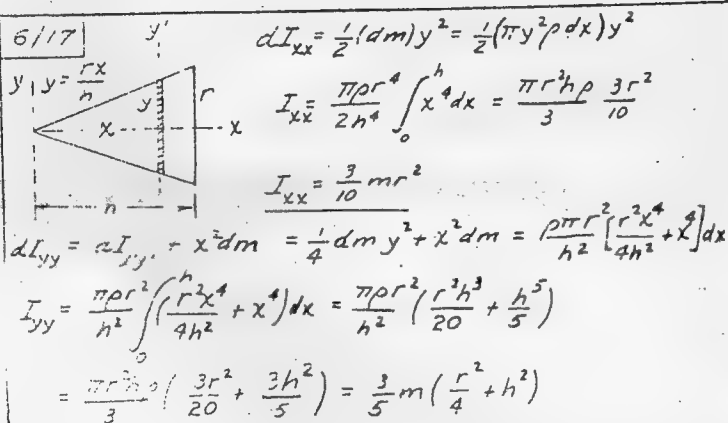 6/17
dI_xx = 1/2 (dm) y² = 1/2 (πy²ρdx) y²
y'
y
y = rx/h
y
r
x
x
h
I_xx = πρr⁴/2h⁴ ∫₀ʰ x⁴dx = πr²hρ/3 3r²/10
I_xx = 3/10 mr²
dI_yy = dI_y'y' + x²dm = 1/4 dm y² + x²dm = ρπr²/h² [r²x⁴/4h² + x⁴]dx
I_yy = πρr²/h² ∫₀ʰ (r²x⁴/4h² + x⁴)dx = πρr²/h² (r²h³/20 + h⁵/5)
= πr²hρ/3 (3r²/20 + 3h²/5) = 3/5 m (r²/4 + h²)